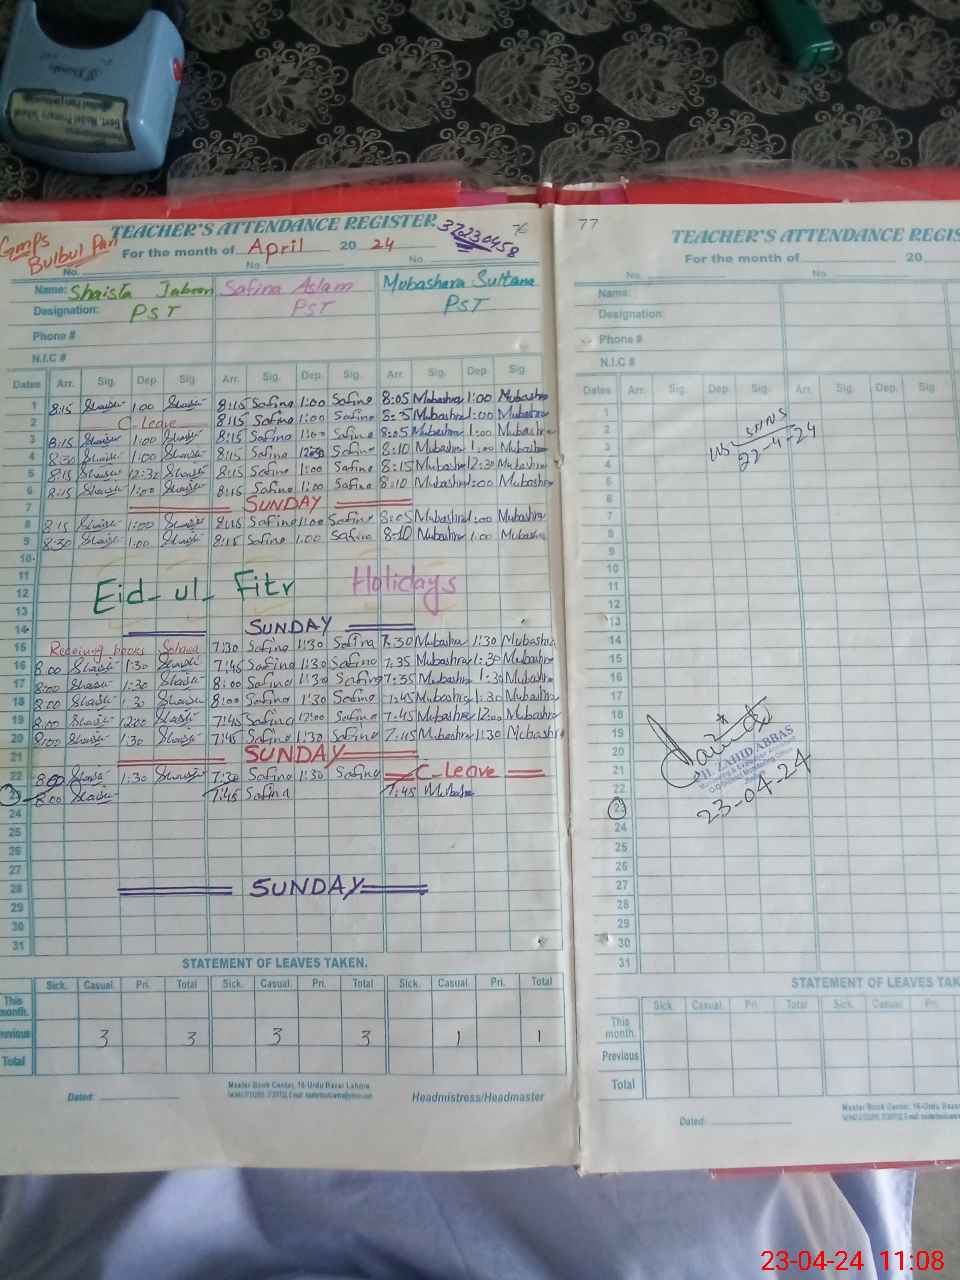 Govt. Model Primary School
Gmps
Bulbul Pari
TEACHER'S ATTENDANCE REGISTER
37230458
76
For the month of April 2024
No. No. No.
Name: Shaista Jabeen Safina Aslam Mubashara Sultana
Designation: PST PST PST
Phone #
N.I.C #
Dates Arr. Sig. Dep. Sig. Arr. Sig. Dep. Sig. Arr. Sig. Dep. Sig.
1 8:15 1:00 8:15 Safina 1:00 Safina 8:05 Mubashra 1:00 Mubashra
2 C-Leave 8:15 Safina 1:00 Safina Mubashra 1:00 Mubashra
3 8:15 1:00 8:15 Safina 1:00 Safina 8:05 Mubashra 1:00 Mubashra
4 8:30 1:00 8:15 Safina Safina 8:10 Mubashra 1:00 Mubashra
5 8:15 12:30 8:15 Safina 1:00 Safina 8:15 Mubashra 12:30 Mubashra
6 8:15 1:00 8:15 Safina 1:00 Safina 8:10 Mubashra 1:00 Mubashra
7 SUNDAY
8 8:15 1:00 8:15 Safina 1:00 Safina 8:05 Mubashra 1:00 Mubashra
9 8:30 1:00 8:15 Safina 1:00 Safina 8:10 Mubashra 1:00 Mubashra
10
11
12 Eid-ul-Fitr Holidays
13
14 SUNDAY
15 Receiving books Sohawa 7:30 Safina 1:30 Safina 7:30 Mubashra 1:30 Mubashra
16 8:00 1:30 7:45 Safina 1:30 Safina 7:35 Mubashra 1:30 Mubashra
17 8:00 1:30 8:00 Safina 1:30 Safina 7:35 Mubashra 1:30 Mubashra
18 8:00 1:30 8:00 Safina 1:30 Safina 7:45 Mubashra 1:30 Mubashra
19 8:00 12:00 7:45 Safina 12:00 Safina 7:45 Mubashra 12:00 Mubashra
20 8:00 1:30 7:45 Safina 1:30 Safina 7:45 Mubashra 1:30 Mubashra
21 SUNDAY
22 8:00 1:30 7:30 Safina 1:30 Safina C-Leave
23 8:00 7:45 Safina 7:45 Mubashra
24
25
26
27
28 SUNDAY
29
30
31
STATEMENT OF LEAVES TAKEN.
Sick. Casual. Pri. Total Sick. Casual. Pri. Total Sick. Casual. Pri. Total
This month.
Previous 3 3 3 3 1 1
Total
Dated:
Master Book Center, 16-Urdu Bazar Lahore
Headmistress/Headmaster
77
TEACHER'S ATTENDANCE REGIS
For the month of 20
No. No.
Name:
Designation:
Phone #
N.I.C #
Dates Arr. Sig. Dep. Sig. Arr. Sig. Dep. Sig.
1
2
3
22-4-24
4
5
6
7
8
9
10
11
12
13
14
15
16
17
18
19
20
ZAHID ABBAS
21
22
23
23-04-24
24
25
26
27
28
29
30
31
STATEMENT OF LEAVES TAK
Sick. Casual. Pri. Total Sick. Casual. Pri.
This month.
Previous
Total
Dated:
Master Book Center, 16-Urdu Bazar
23-04-24 11:08